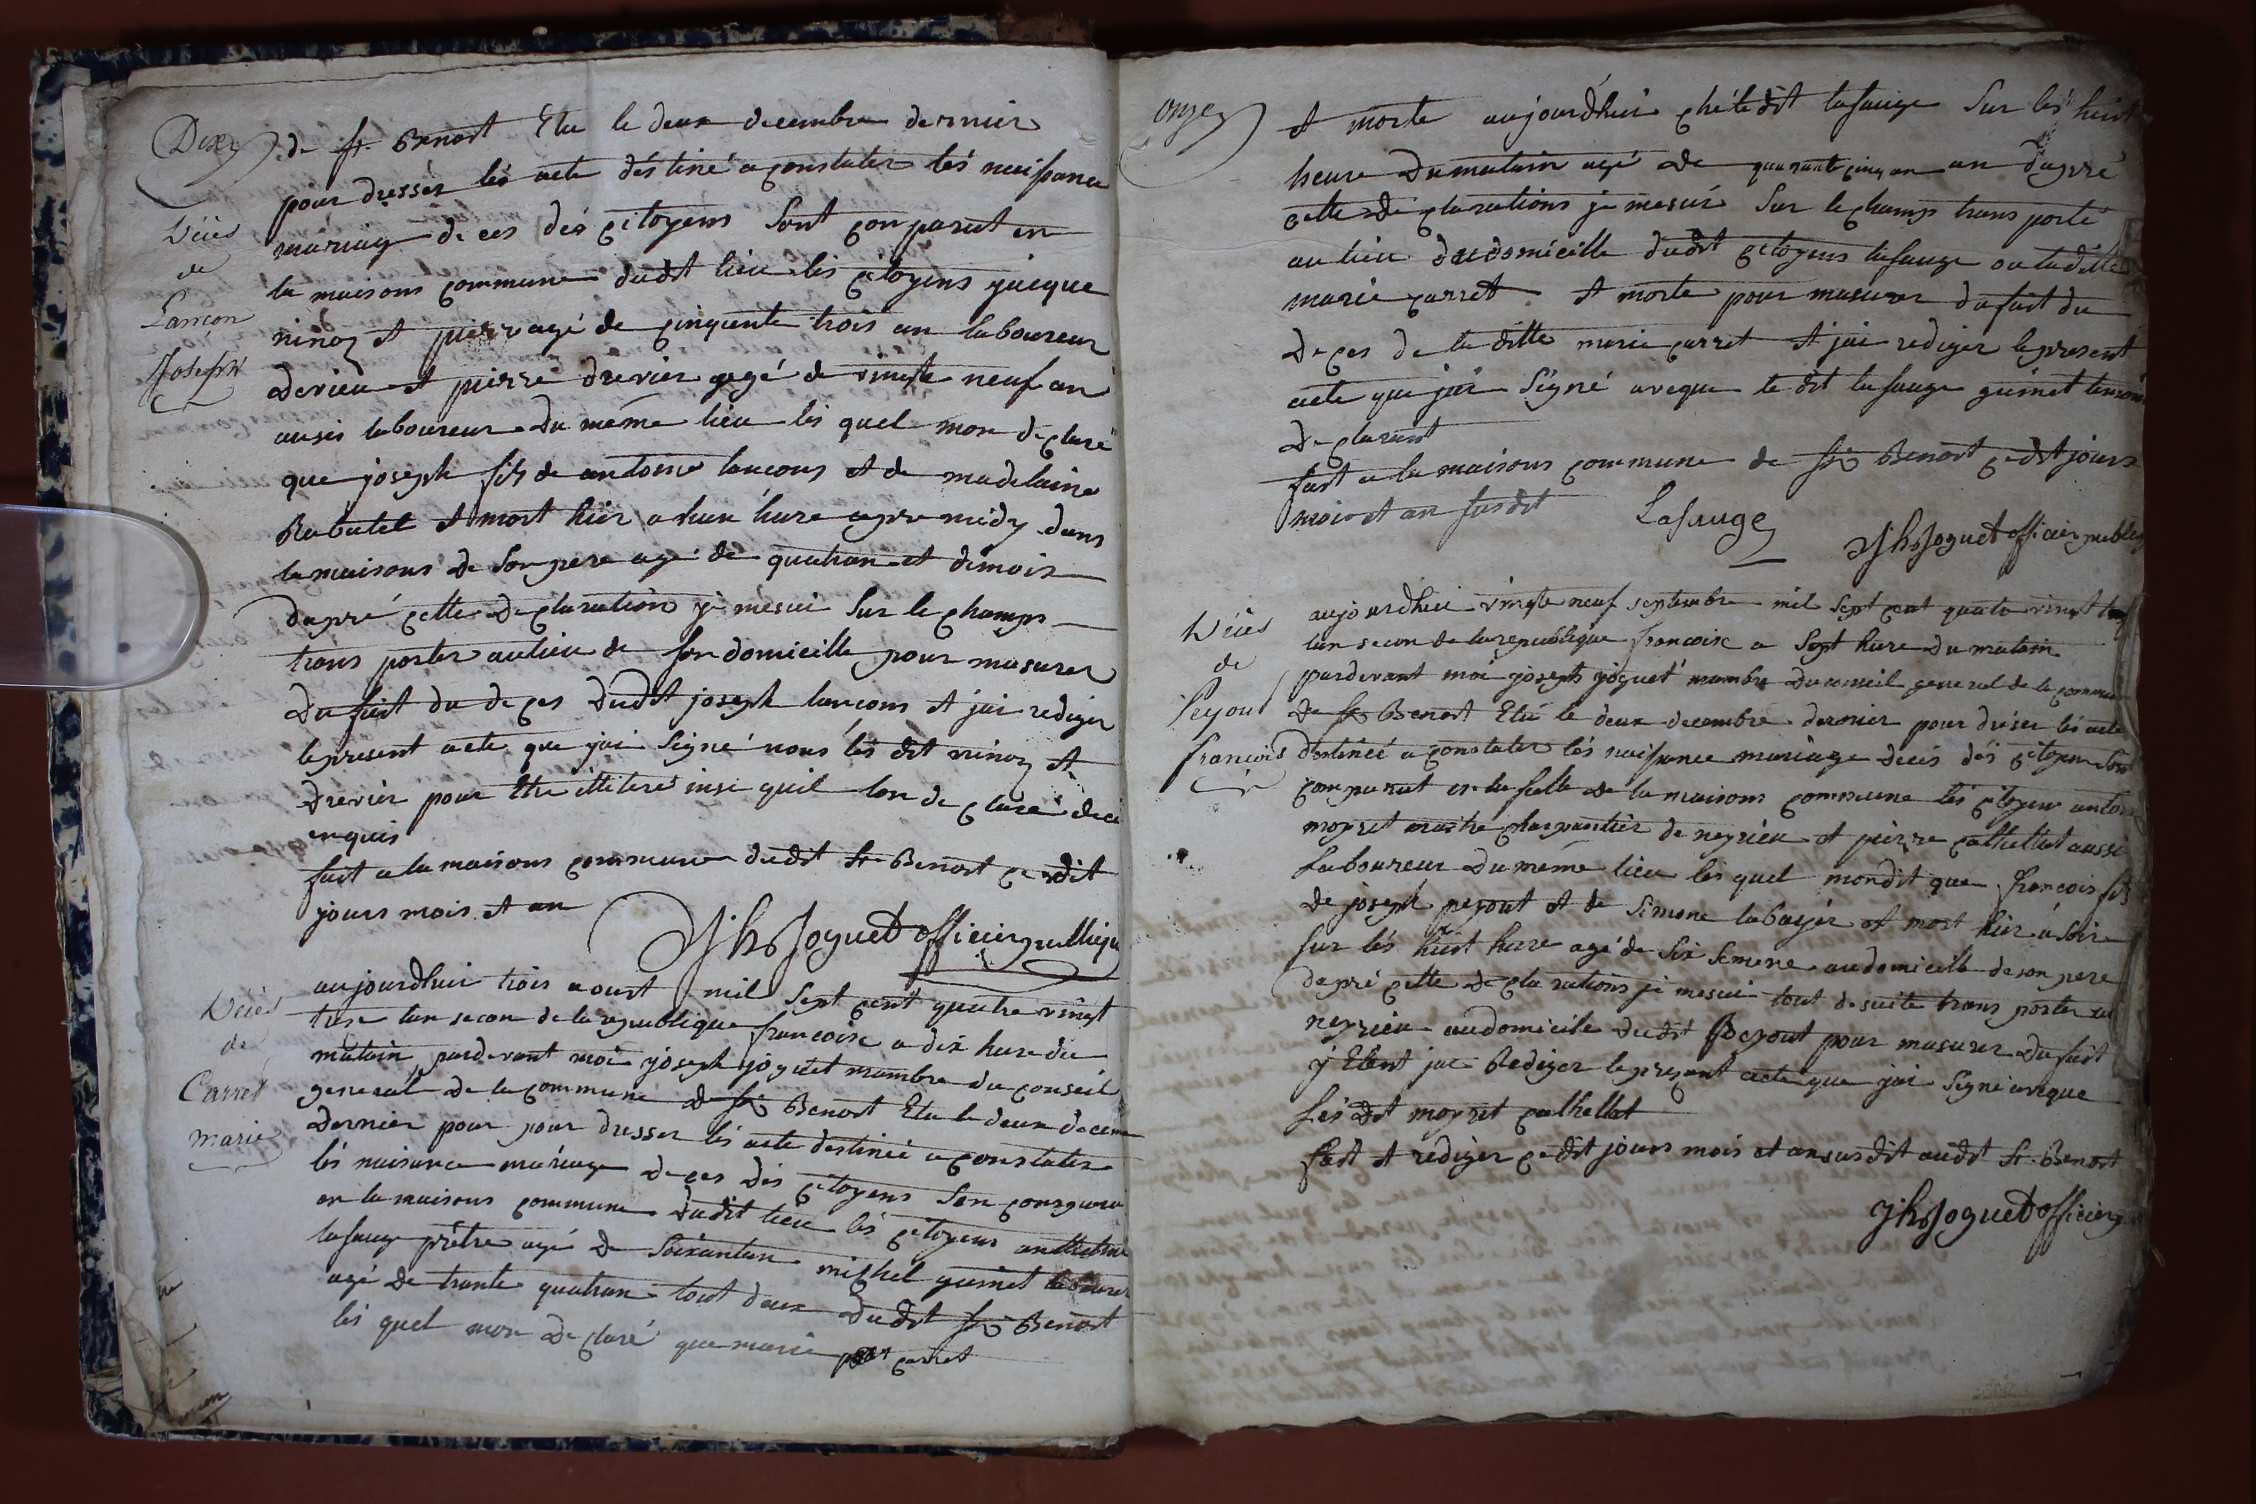 Dix
de St. Benoit Elu le deux decembre dernier
pour dresser lés acte déstiné a constater lés naissance
mariage deces dés citoyens sont comparut en
la maisons commune dudit lieu les citoyens jacque
ninoz et pierr agé de cinquente trois an laboureur
et pierre drevier agé de vingte neuf an
ausis laboureur du méme lieu lés quel mon declaré
que joseph fils de antoine lancons et de madelaine
Rabatel et mort hiér a hun hure apre midy dans
la maisons de son pere agé de quatran et dimois
Décés
de
Lancon
Joseph
dapré cette declaration je mesui sur le champs
trans porter au lieu de son domicille pour masurer
du fait du deces dudit joseph lancons et jai rediger
le present acte que jai signé nous lés dit ninoz et
drevier pour être illitere insi quil lon declaré dece
enquis
fait a la maisons commune dudit St. Benoit ce dit
jours mois et an
Jh Joguet officier publique
Décés
de
Carret
marie
aujourdhui trois aoust mil sept cent quatre vingt
trese lan secon de la republique francoise a dix hure du
matain pardevant moi joseph joguet mambre du conseil
general de la commune de St Benoit Elu le deux decem
dernier pour pour dresser lés acte destinée a constater
lés naisance mariage deces dés citoyens son comparu
en la maisons commune dudit lieu lés citoyens anthelme
lasauge prêtre agé de soixantan michel guinet laboureur
agé de trante quatran tout deux dudit St Benoit
lés quel mon declaré que marie carret
onze
et morte aujourdhui ché le dit lasauge sur les huit
heure du matain agé de quarante cinq an an dapré
cette déclarations je mesuis sur le champs trans porté
au lieu du domicille dudit citoyens lasauge ou la ditte
marie carret et morte pour masurer du fait du
deces de la ditte marie carret et jai rediger le present
acte que jai signé aveque le dit lasauge guinet
declarant
fait a la maisons commune de St Benoit ce dit jours
mois et an susdit
Lasauge
Jh Joguet officier public
Décés
de
Peyout
francois
aujourdhui vingte neuf septembre mil sept cent quatre vingt
lan secon de la republique francoise a sept hure du matain
pardevant moi joseph joguet mambre du conseil general de la commune
de St Benoit Elu le deux decembre dernier pour dréser lés acte
destinéé a constater lés naissance mariage decés dés citoyen son
comparut en la salle de la maisons commune lés citoyen antoine
moyret maitre charpantier de neyrieu et pierre cathellat aussi
laboureur du méme lieu lés quel mondit que francois fils
de joseph peyout et de simone labasjér et mort hiér á soir
sur lés huit hure agé de six semene au domicille de son pere
dapré cette declarations je mesui tout de suite trans porter au
neyrieu au domicile dudit Peyout pour masurer du fait
y Etant jai Rediger le present acte que jai signé aveque
lés dit moyret cathellat
fait et rediger ce dit jours mois et an susdit audit St. Benoit
Jh Joguet officier